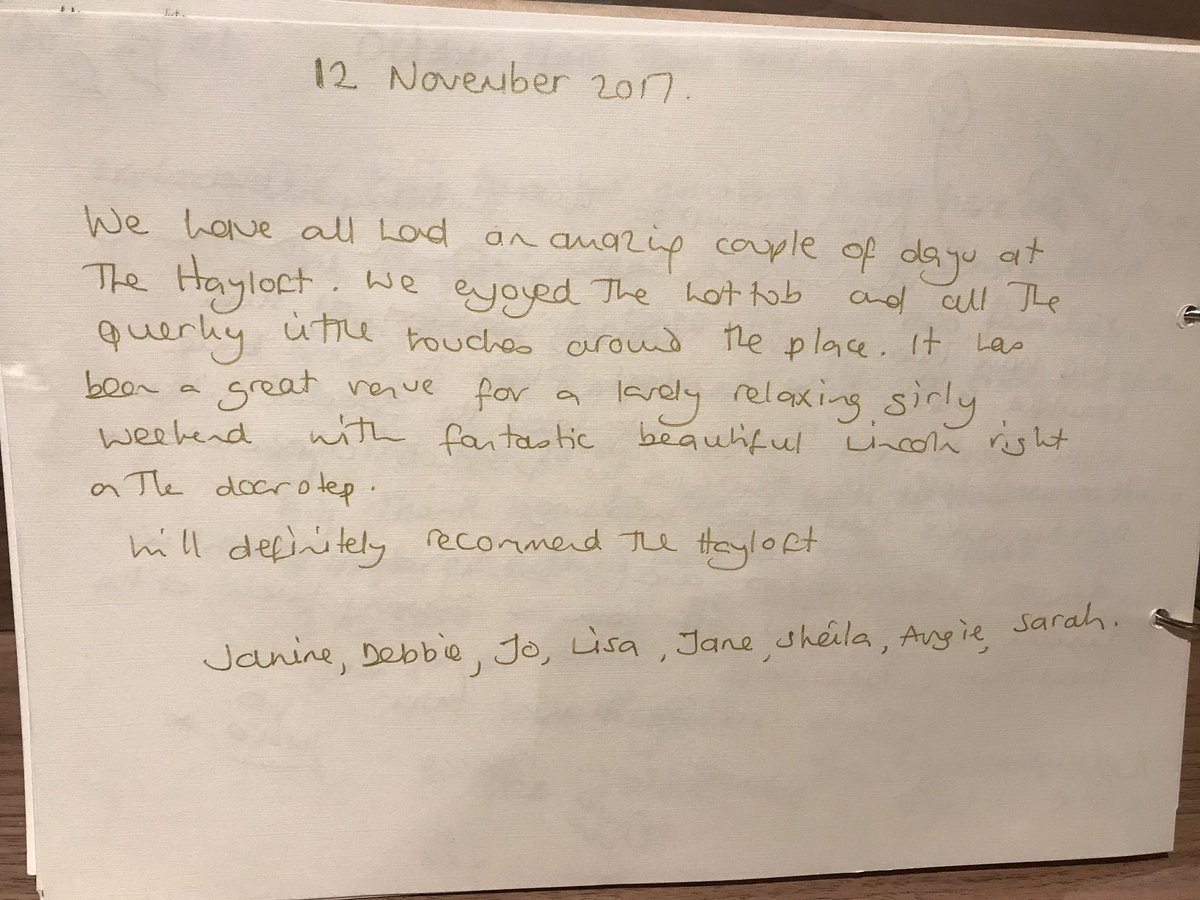 12 November 2017.
We have all had an amazing couple of days at
The Hayloft. We enjoyed The hot tub and all The
querky little touches around the place. It has
been a great venue for a lovely relaxing girly
weekend with fantastic beautiful Lincoln right
on The doorstep.
Will definitely recommend The Hayloft
Janine, Debbie, Jo, Lisa, Jane, Sheila, Angie, Sarah.